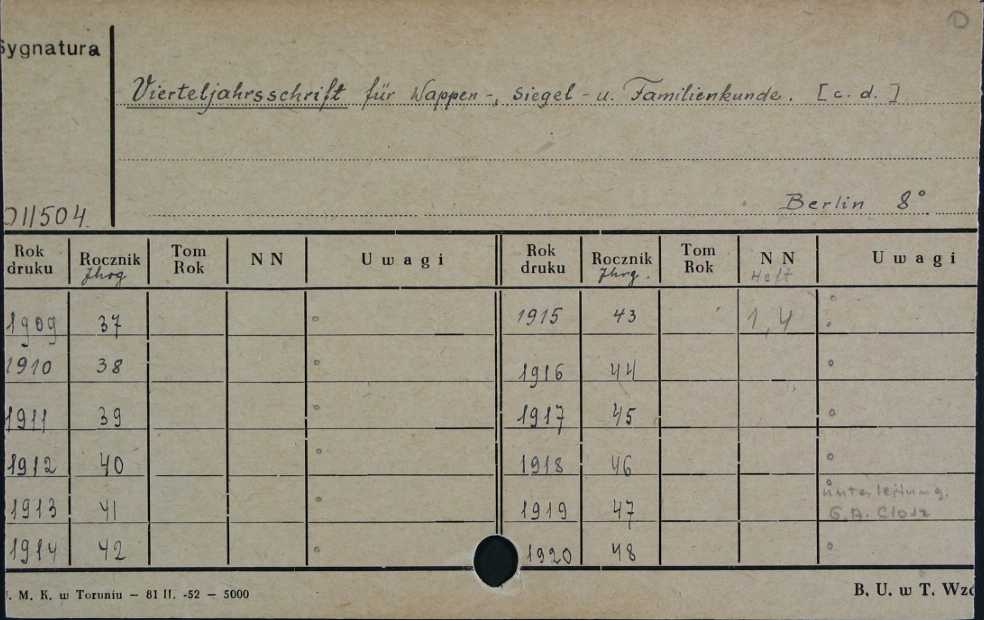 D
Sygnatura
Vierteljahrsschrift für Wappen-, Siegel- u. Familienkunde. [c. d.]
Berlin 8°
011504
Rok druku Rocznik Jhrg Tom Rok NN Uwagi Rok druku Rocznik Jhrg. Tom Rok NN Heft Uwagi
1909 37 1915 43 1,4
1910 38 1916 44
1911 39 1917 45
1912 40 1918 46
1913 41 1919 47 unter leitung. G.A. Closz
1914 42 1920 48
. M. K. w Toruniu — 81 II. -52 — 5000
B. U. w T. Wzó